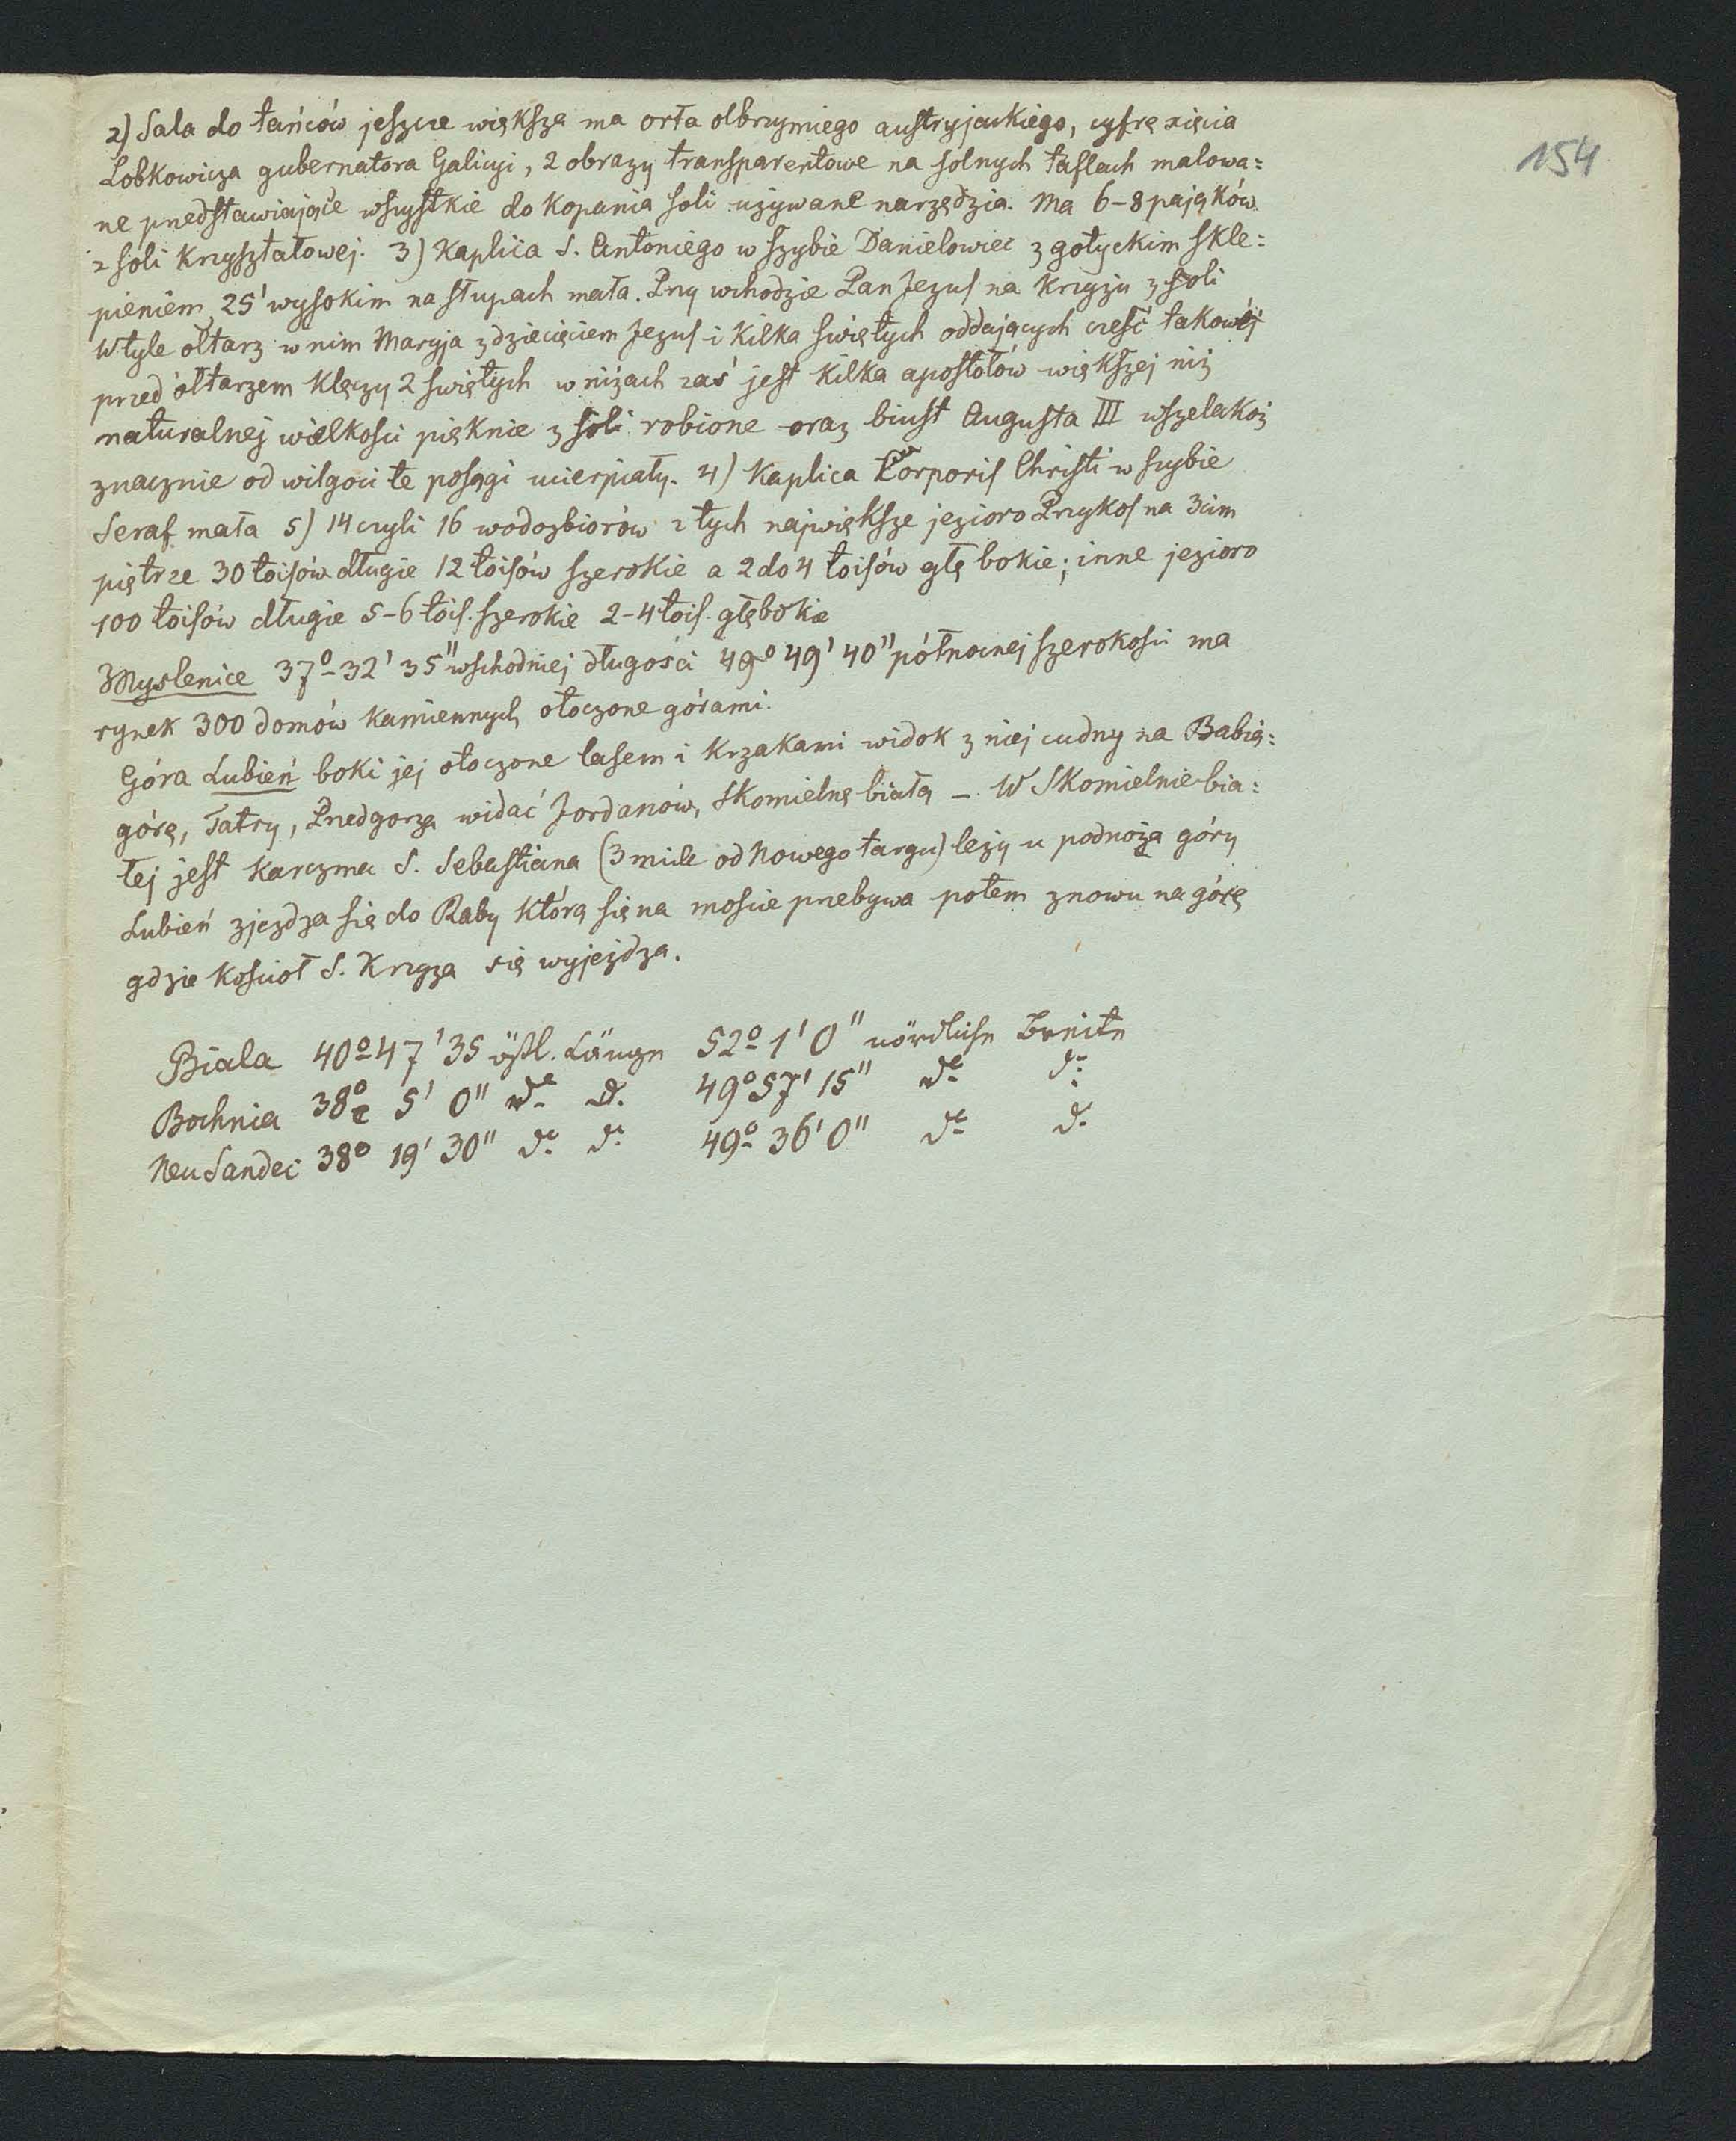 154
2) Sala do tańców jeszcze większa ma orła olbrzymiego austryjackiego, cyfrę xięcia
Lobkowicza gubernatora Galicyi, 2 obrazy transparentowe na solnych taflach malowa=
ne przedstawiające wszystkie do kopania soli używane narzędzia. Ma 6-8 pająków
z soli kryształowej. 3) Kaplica S. Antoniego w szybie Danielowiec z gotyckim skle=
pieniem 25' wysokim na słupach mała. Przy wchodzie Pan Jezus na krzyżu z soli
W tyle ołtarz w nim Maryja z dziecięciem Jezus i kilka świętych oddających cześć takowéj
przed ołtarzem klęczy 2 świętych w niżach zaś jest kilka apostołów większej niż
naturalnej wielkosci pięknie z soli robione oraz biust Augusta III wszelakoż
znacznie od wilgoci te posągi ucierpiały. 4) Kaplica Corporis Christi w szybie
Seraf mała 5) 14 czyli 16 wodozbiorów z tych największe jezioro Przykos na 3cim
piętrze 30 toisów długie 12 toisów szerokie a 2 do 4 toisów głębokie; inne jezioro
100 toisów długie 5-6 tois. szerokie 2-4 tois. głębokie
Myslenice 37°-32' 35" wschodniej długości 49° 49' 40" północnej szerokosci ma
rynek 300 domów kamiennych otoczone górami.
Góra Lubień boki jej otoczone lasem i krzakami widok z niej cudny na Babią=
górę, Tatry, Przedgorza widać Jordanów, Skomielnę białą – W Skomielnie bia=
łej jest karczma S. Sebastiana (3 mile od Nowego targu) leży u podnoża góry
Lubień zjezdza się do Raby którą się na moscie przebywa potem znowu na górę
gdzie kosciół S. Krzyza się wyjeżdza.
Biala 40° 47' 35 östl. Länge 52° 1' 0" nördliche Breite
Bochnia 38° 5' 0" do do 49° 57' 15" do do
Neu Sandec 38° 19' 30" do do 49° 36' 0" do do